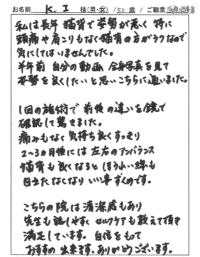 お名前 K.I 様(男・女)/51歳/ご職業
私は長年 猫背で姿勢が悪く 特に
頭痛や肩こりもなく猫背の方がラクなので
気にしてはいませんでした。
半年前 自分の動画、全身写真を見て
姿勢を良くしたいと思いこちらに通いました。
1回の施術で前後の違いを鏡で
確認して驚きました。
痛みもなく気持ち良くすっきり
2〜3ヵ月後には左右のアンバランス
猫背も良くなると ほうれい線も
目立たなくなり いい事ずくめです。
こちらの院は清潔感もあり
先生も話しやすく セルフケアも教えて頂き
満足しています。自信をもって
おすすめ出来ます。ありがとうございます。